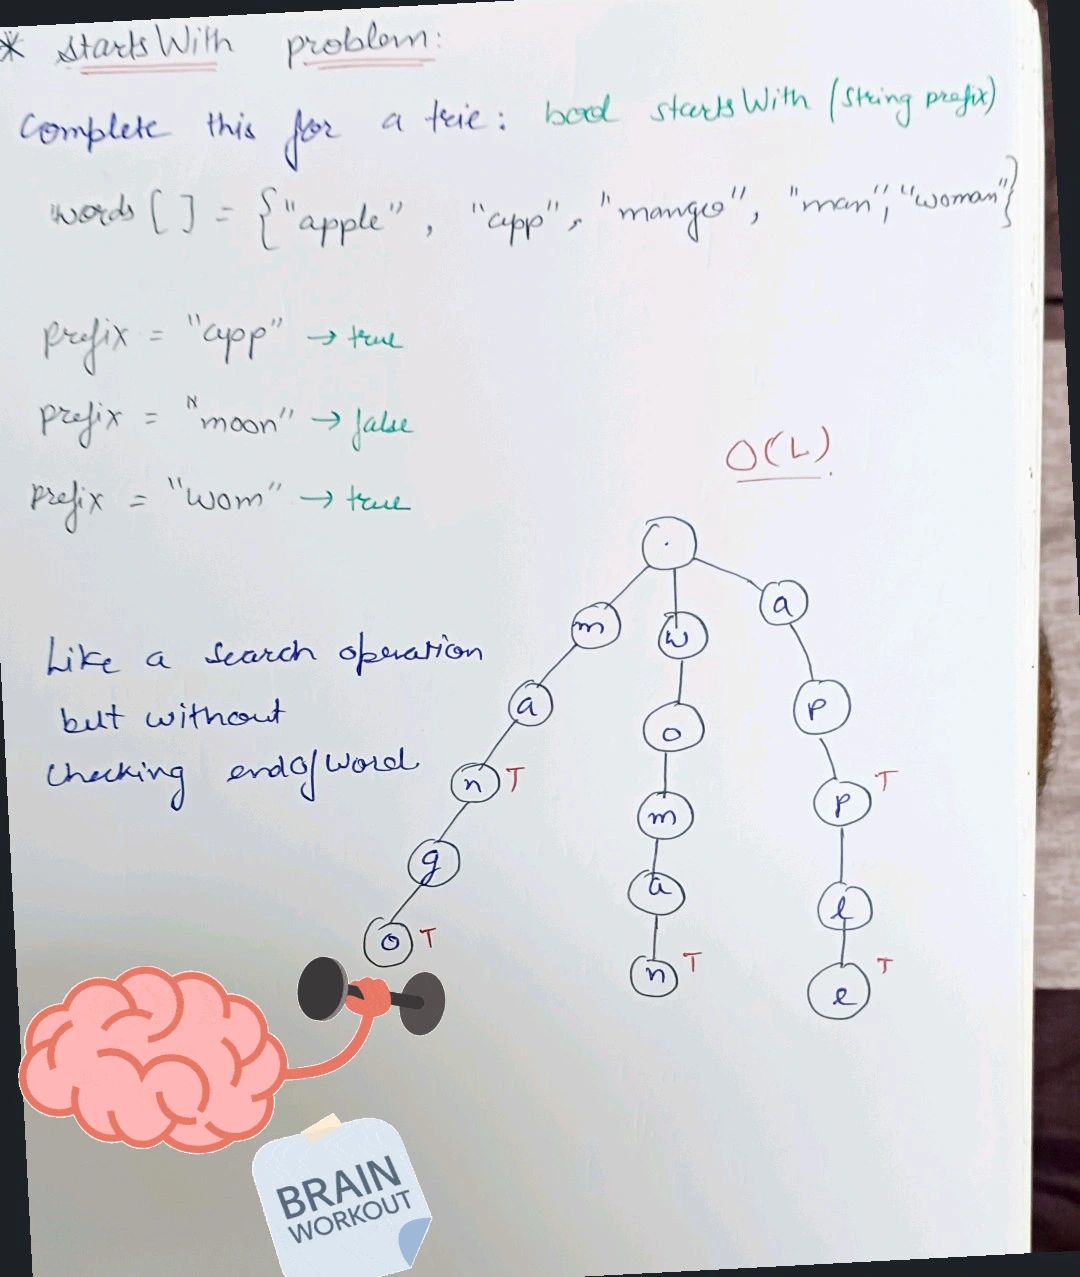 * startsWith problem:
Complete this for a trie: bool startsWith (string prefix)
words [ ] = {"apple", "app", "mango", "man", "woman"}
prefix = "app" → true
prefix = "moon" → false
prefix = "wom" → true
O(L)
Like a search operation
but without
checking endOfWord
.
m w a
a o p
n T m p T
g a l
o T n T e T
BRAIN
WORKOUT